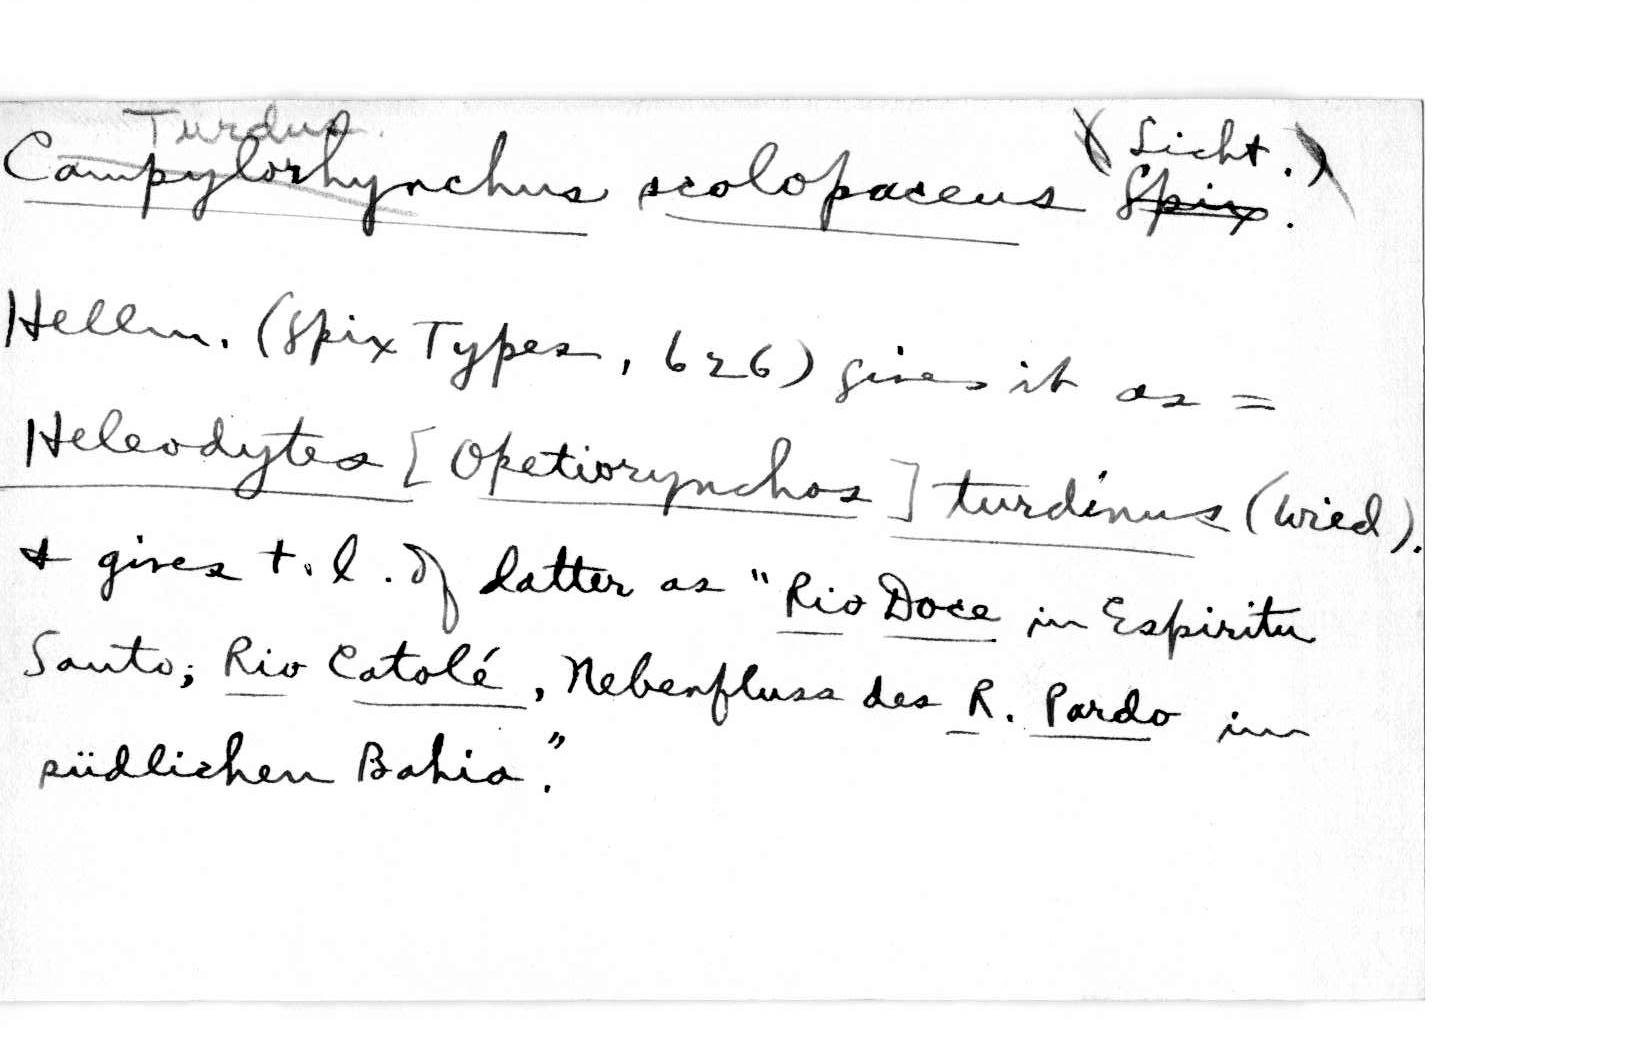 Turdus.
Campylorhynchus scolopaceus (Licht.)
Spix.
Hellm. (Spix Types, 626) gives it as =
Heleodytes [Opetiorynchos] turdinus (Wied).
& gives t.l. of latter as "Rio Doce in Espiritu
Santo; Rio Catolé, Nebenfluss des R. Pardo im
südlichen Bahia."